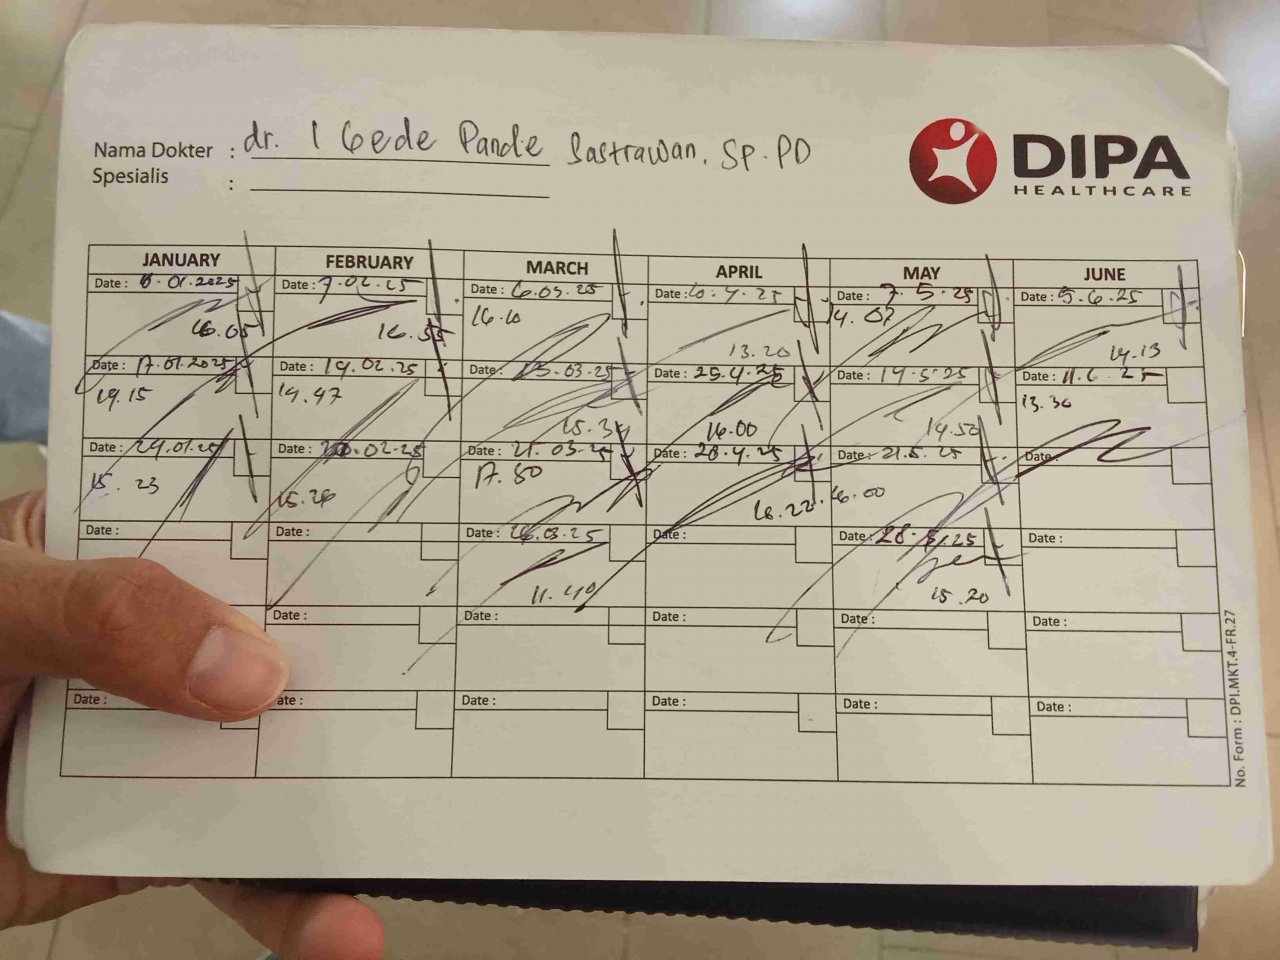 Nama Dokter : dr. I Gede Pande Sastrawan, SP.PD
Spesialis :
DIPA
HEALTHCARE
JANUARY FEBRUARY MARCH APRIL MAY JUNE
Date : .01.2025 Date : 7.02.25 Date : 6.03.25 Date : 10.4.25 Date : 7.5.25 Date : 5.6.25
16.05 16.55 16.10 13.20 14.07 14.13
Date : 17.01.2025 Date : 14.02.25 Date : 13.03.25 Date : 25.4.25 Date : 14.5.25 Date : 11.6.25
19.15 14.47 15.34 16.00 14.50 13.30
Date : 24.01.25 Date : .02.25 Date : 21.03.25 Date : 28.4.25 Date : 21.5.25 Date :
15.23 15.26 17.50 16.22 16.00
Date : Date : Date : 26.03.25 Date : Date : 28.5.25 Date :
11.40 15.20
Date : Date : Date : Date : Date :
Date : ate : Date : Date : Date : Date :
No. Form : DPI.MKT.4-FR.27